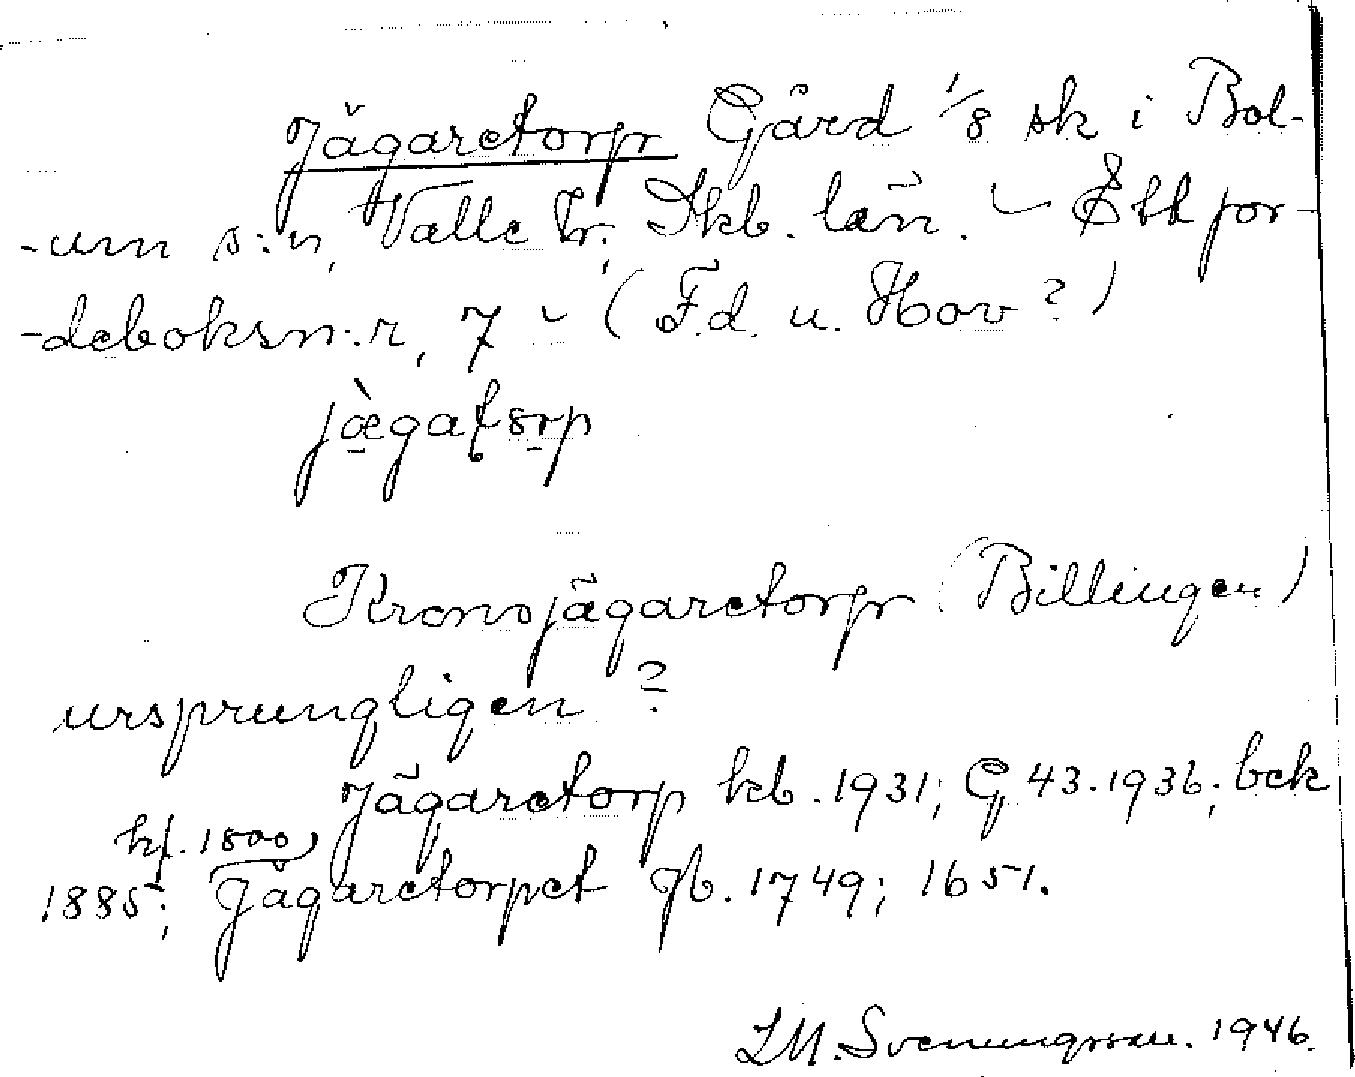 Jägaretorp Gård 1/8 sk i Bol-
-um s:n, Valle hr; Skb. län. — Ett jor-
-deboksn:r, 7 — (F.d. u. Hov?)
jægatorp
Kronojägaretorp (Billingen)
ursprungligen?
Jägaretorp kb. 1931; G, 43. 1936; bek
kf. 1800,
1885; Jägaretorpet Jb. 1749; 1651.
L.M. Svenungsson. 1946.